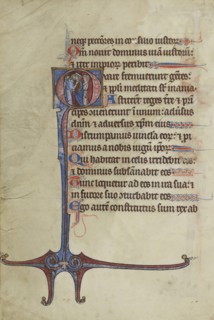 neq; peccatores in co[n]silio iustorum
Qm nouit dominus uiam iustorum
& iter impiorum peribit
Quare fremuerunt gentes:
& ppli meditati s[un]t inania
Astiterunt reges terre & pri
cipes conuenerunt in unum: aduersus
dnm & aduersus xpm eius
Dirumpamus uincla eorum: & pro
iciamus a nobis iugum ipsorum
Qui habitat in celis irridebit eos:
& dominus subsannabit eos
Tunc loquetur ad eos in ira sua: &
in furore suo conturbabit eos
Ego autem constitutus sum rex ab